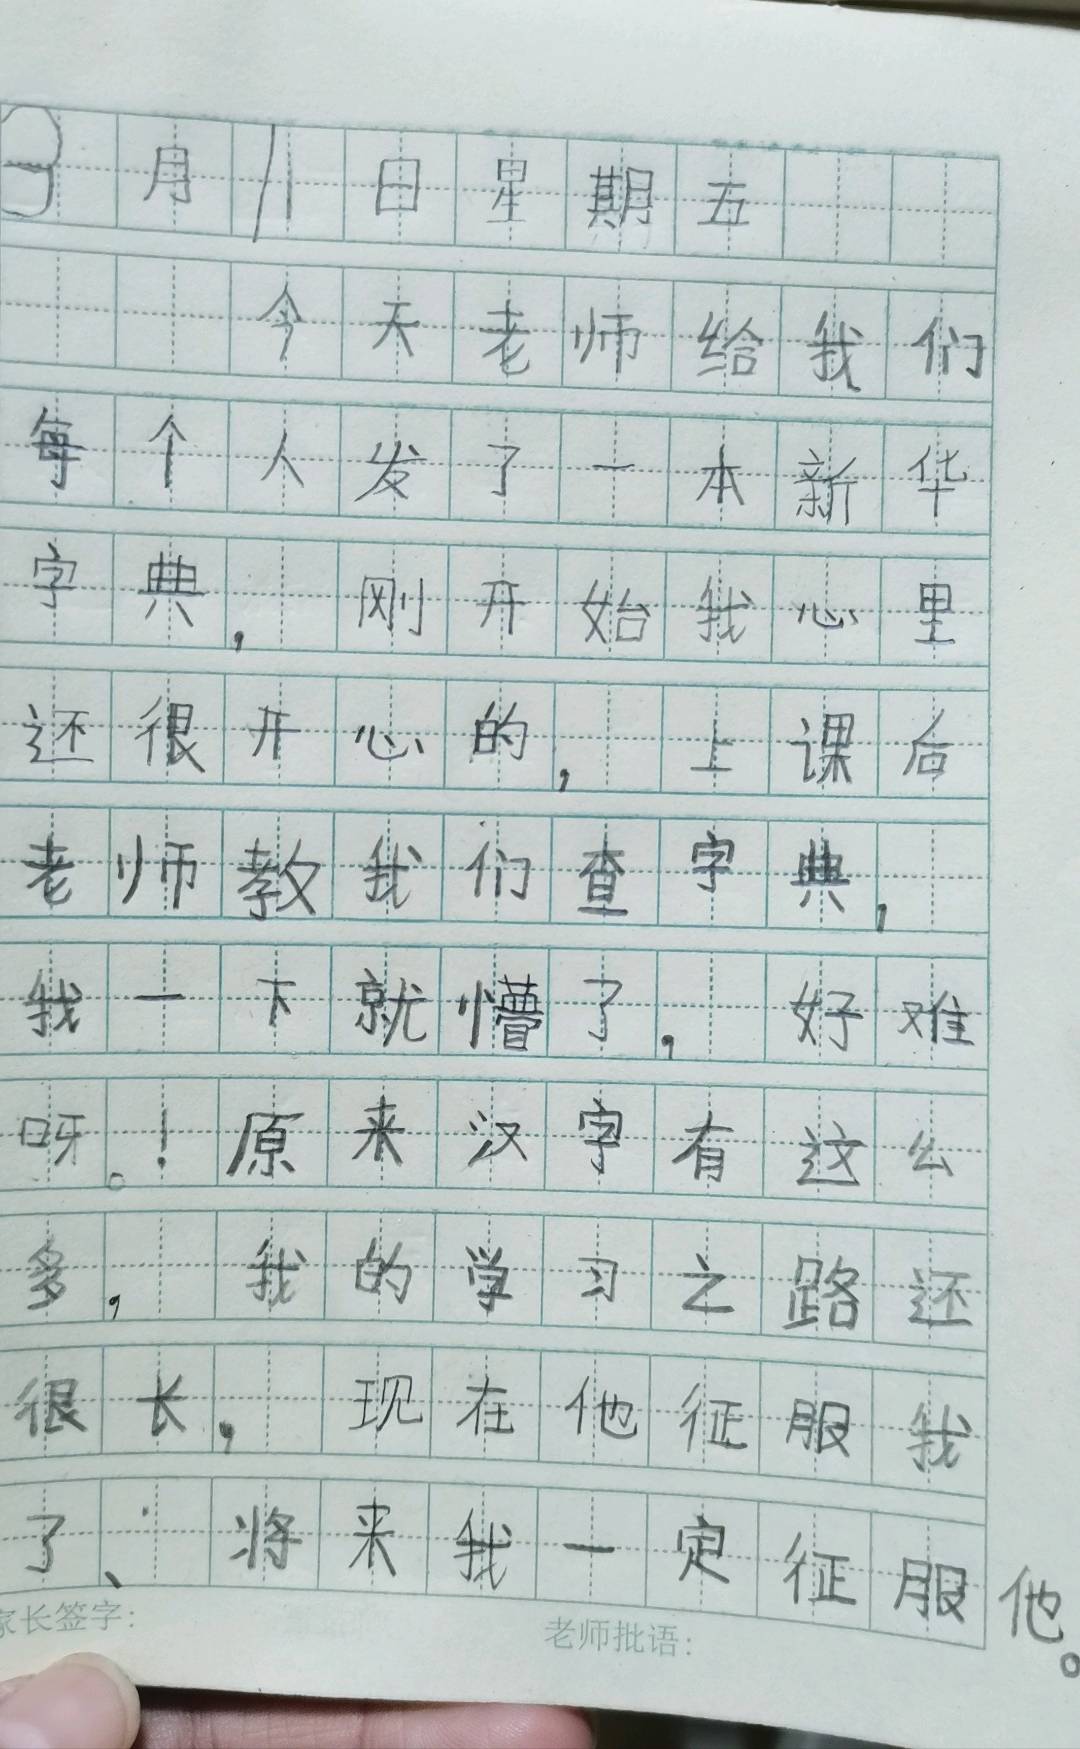 3月11日星期五
今天老师给我们
每个人发了一本新华
字典，刚开始我心里
还很开心的，上课后
老师教我们查字典，
我一下就懵了，好难
呀。！原来汉字有这么
多，我的学习之路还
很长，现在他征服我
了、将来我一定征服他。
家长签字：
老师批语：